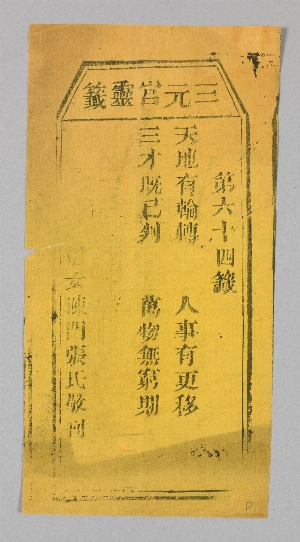 三元宮靈籤
第六十四籤
天地有輪轉 人事有更移
三才既已判 萬物無窮期
陳門張氏敬刊
D